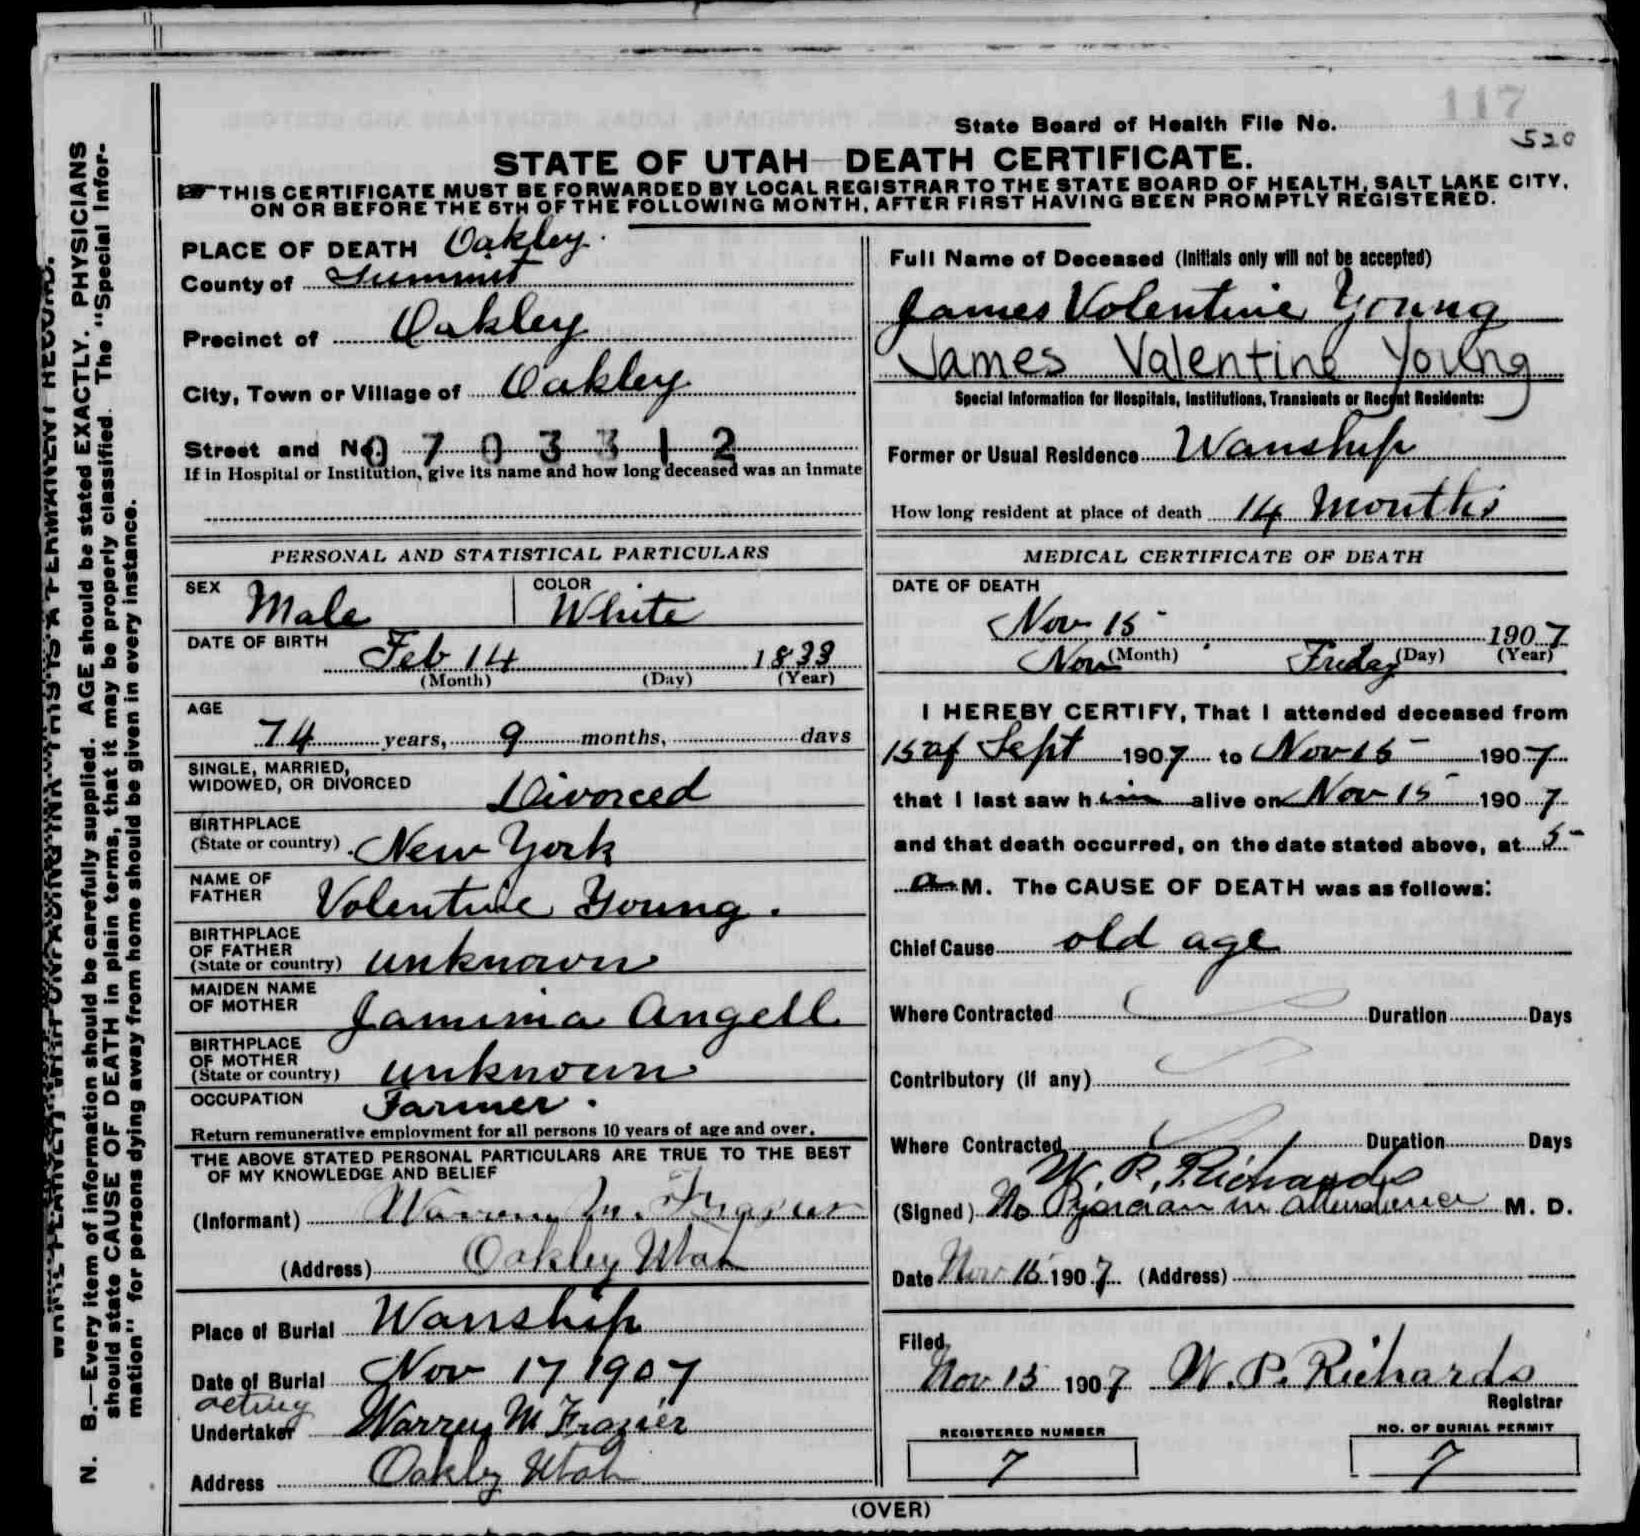 117
State Board of Health File No.
520
STATE OF UTAH—DEATH CERTIFICATE.
THIS CERTIFICATE MUST BE FORWARDED BY LOCAL REGISTRAR TO THE STATE BOARD OF HEALTH, SALT LAKE CITY,
ON OR BEFORE THE 5TH OF THE FOLLOWING MONTH, AFTER FIRST HAVING BEEN PROMPTLY REGISTERED.
N. B.—Every item of information should be carefully supplied. AGE should be stated EXACTLY. PHYSICIANS
should state CAUSE OF DEATH in plain terms, that it may be properly classified. The "Special Infor-
mation" for persons dying away from home should be given in every instance.
PLACE OF DEATH Oakley.
County of Summit
Precinct of Oakley
City, Town or Village of Oakley
Street and No. 0703312
If in Hospital or Institution, give its name and how long deceased was an inmate
PERSONAL AND STATISTICAL PARTICULARS
SEX Male COLOR White
DATE OF BIRTH Feb 14 1833
(Month) (Day) (Year)
AGE
74 years, 9 months, days
SINGLE, MARRIED,
WIDOWED, OR DIVORCED Divorced
BIRTHPLACE
(State or country) New York
NAME OF
FATHER Volentine Young.
BIRTHPLACE
OF FATHER
(State or country) unknown
MAIDEN NAME
OF MOTHER Jamima Angell
BIRTHPLACE
OF MOTHER
(State or country) unknown
OCCUPATION Farmer.
Return remunerative employment for all persons 10 years of age and over.
THE ABOVE STATED PERSONAL PARTICULARS ARE TRUE TO THE BEST
OF MY KNOWLEDGE AND BELIEF
(Informant) Warren M. Frazier
(Address) Oakley Utah
Place of Burial Wanship
Date of Burial Nov 17 1907
acting
Undertaker Warren M Frazier
Address Oakley Utah
Full Name of Deceased (Initials only will not be accepted)
James Volentine Young
James Valentine Young
Special Information for Hospitals, Institutions, Transients or Recent Residents:
Former or Usual Residence Wanship
How long resident at place of death 14 Months
MEDICAL CERTIFICATE OF DEATH
DATE OF DEATH
Nov 15 1907
(Month) (Day) (Year)
Nov Friday
I HEREBY CERTIFY, That I attended deceased from
15 of Sept 1907 to Nov 15 1907
that I last saw him alive on Nov 15 1907
and that death occurred, on the date stated above, at 5
a M. The CAUSE OF DEATH was as follows:
Chief Cause old age
Where Contracted Duration Days
Contributory (if any)
Where Contracted Duration Days
W. P. Richards
(Signed) No in attendence M. D.
Date Nov 15 1907 (Address)
Filed
Nov 15 1907 W. P. Richards
Registrar
REGISTERED NUMBER
7
NO. OF BURIAL PERMIT
7
(OVER)